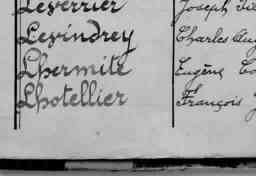 Leverrier Joseph
Levindrey Charles
Lhermite Eugène
Lhotellier François